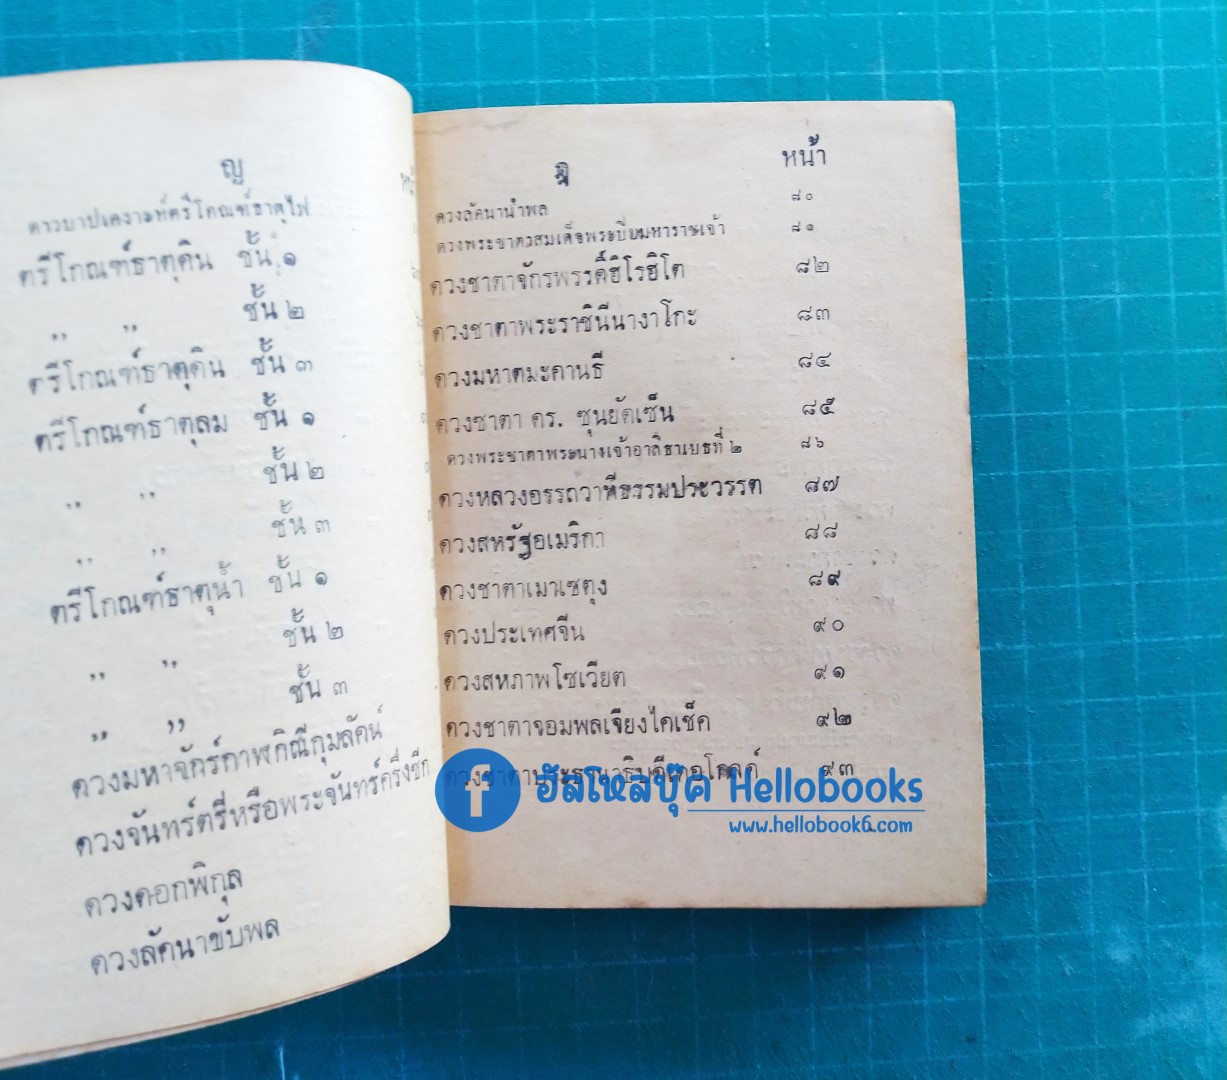 ญ
ดาวบาปเคราะห์ตรีโกณฑ์ธาตุไฟ
ตรีโกณฑ์ธาตุดิน ชั้น ๑
,, ,, ชั้น ๒
ตรีโกณฑ์ธาตุดิน ชั้น ๓
ตรีโกณฑ์ธาตุลม ชั้น ๑
,, ,, ชั้น ๒
,, ,, ชั้น ๓
ตรีโกณฑ์ธาตุน้ำ ชั้น ๑
,, ,, ชั้น ๒
,, ,, ชั้น ๓
ดวงมหาจักร์กาฬกิณีกุมลัคน์
ดวงจันทร์ตรี่หรือพระจันทร์ครึ่งซีก
ดวงดอกพิกุล
ดวงลัคนาขับพล
หน้า
ดวงลัคนานำพล ๘๐
ดวงพระชาตาสมเด็จพระปิยมหาราชเจ้า ๘๑
ดวงชาตาจักรพรรดิ์ฮิโรฮิโต ๘๒
ดวงชาตาพระราชินีนางาโกะ ๘๓
ดวงมหาตมะคานธี ๘๔
ดวงชาตา ดร. ซุนยัดเซ็น ๘๕
ดวงพระชาตาพระนางเจ้าอาลิธาเบธที่ ๒ ๘๖
ดวงหลวงอรรถวาทีธรรมประวรรต ๘๗
ดวงสหรัฐอเมริกา ๘๘
ดวงชาตาเมาเซตุง ๘๙
ดวงประเทศจีน ๙๐
ดวงสหภาพโซเวียต ๙๑
ดวงชาตาจอมพลเจียงไคเช็ค ๙๒
๙๓
f ฮัลโหลบุ๊ค Hellobooks
www.hellobook6.com